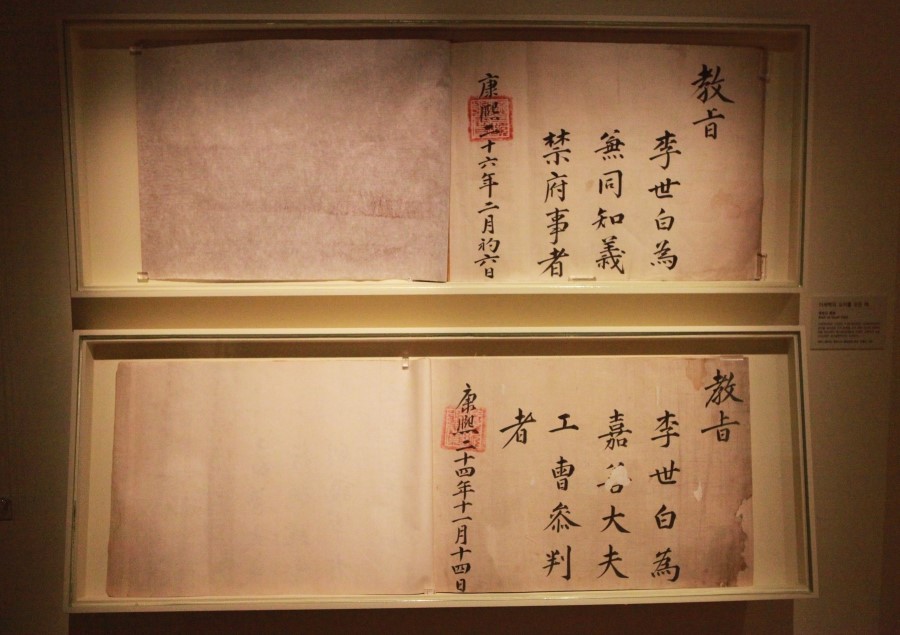 教旨
李世白為
兼同知義
禁府事者
康熙二十六年二月初六日
教旨
李世白為
嘉善大夫
工曹叅判
者
康熙二十四年十一月十四日